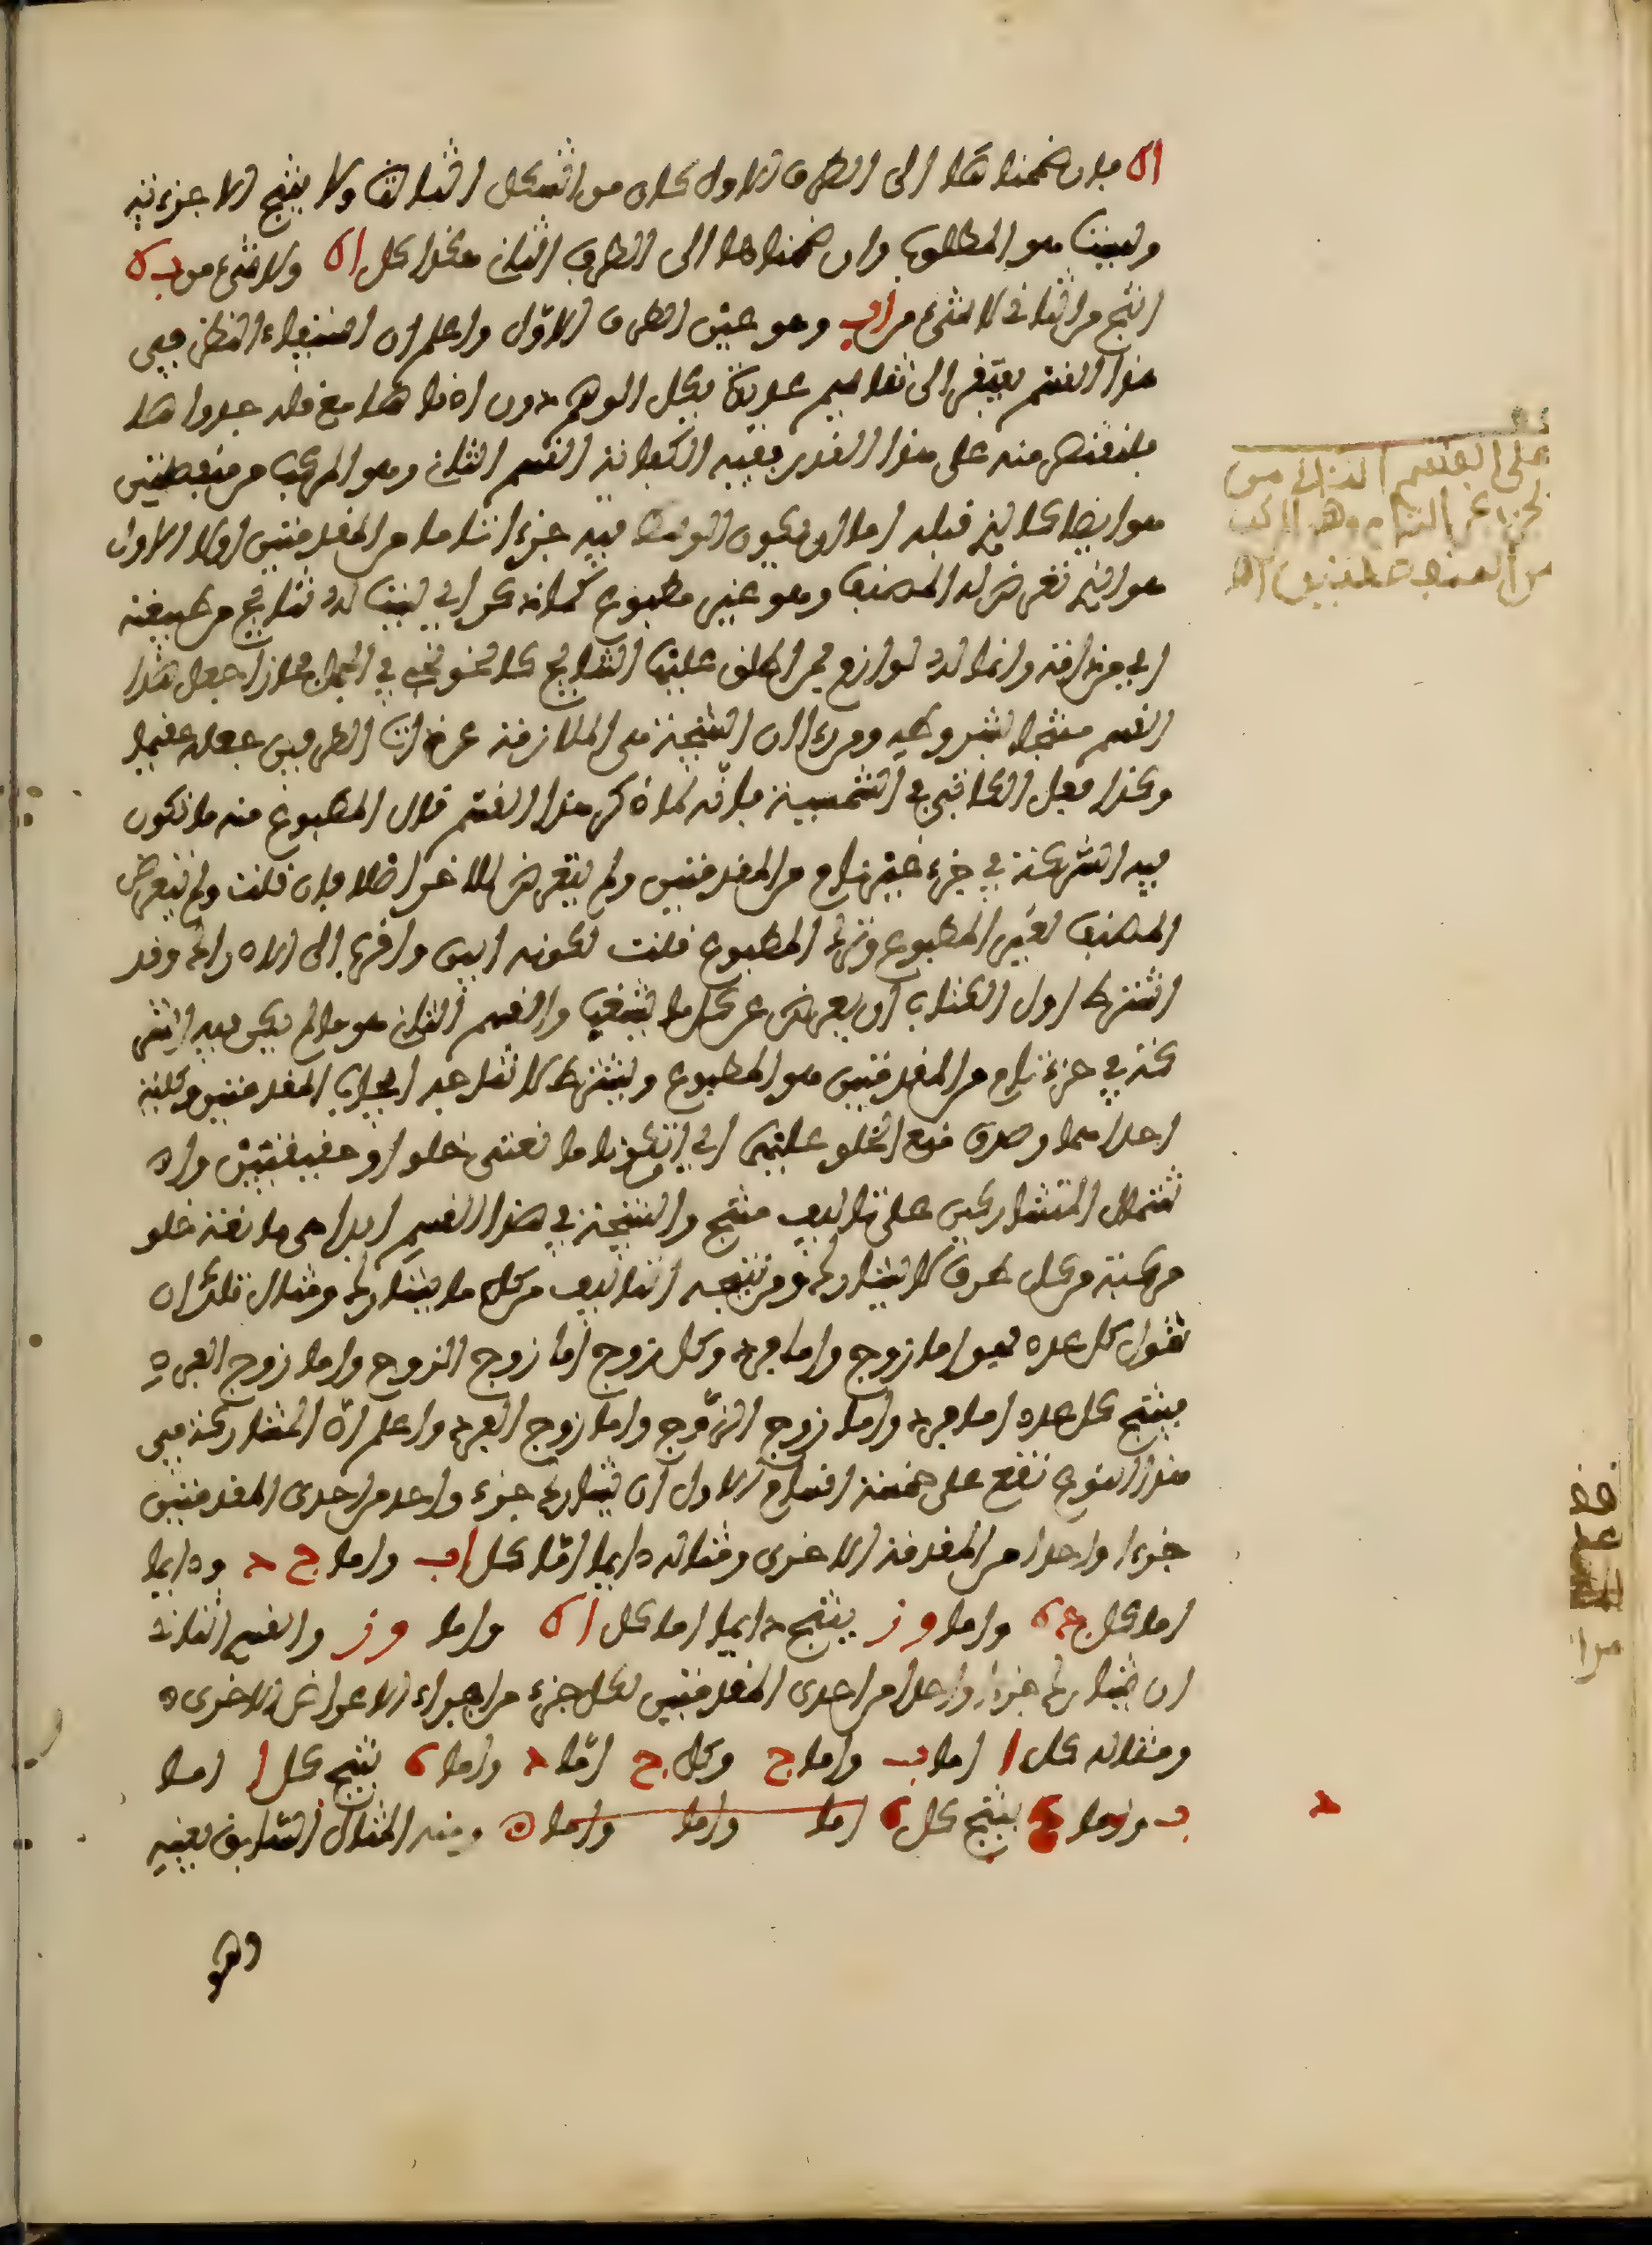 اه فان ضممناها الى الطرف الاول كان من الشكل الثالث ولا ينتج الا جزءية
وليست هو المطلوب وان ضممناها الى الطرف الثاني هكذا كل اه ولا شيء من ب ه
انتج من الثاني لا شيء من اب وهو عين الطرف الاول واعلم ان استيفاء النظر في
هذا القسم يفتقر الى تقاسيم عديدة يكل الوهم دون اذناها مع قلة جدواها
فلنقتصر منه على هذا القدر ففيه الكفاية القسم الثاني وهو المركب من منفصلتين
هو ايضا كالذي قبله اما ان يكون الوسط فيه جزءا تاما من المقدمتين اولا الاول
هو الذي تعرض له المصنف وهو غير مطبوع كما ذكر اي ليست له نتايج من طبيعته
اي من ذاته وانما له لوازم فمن اطلق عليها النتايج كالخونجي في الجمل مجازا جعل هذا
القسم منتجا بشروطه ومن رءا ان النتيجة هي اللازمة عن ذات الطرفين جعله عقيما
وكذا فعل الكاتبي في الشمسية فانه لما ذكر هذا القسم قال المطبوع منه ما تكون
فيه الشركة في جزء غير تام من المقدمتين ولم يتعرض للاخر اصلا فان قلت ولم تعرض
المصنف لغير المطبوع وترك المطبوع قلت لكونه ابين واقرب الى الادراك وقد
اشترط اول الكتاب ان يعرض عن كل ما يشغب والقسم الثاني هو ما لم يكن فيه الشر
كة في جزء تام من المقدمتين هو المطبوع ويشترط لانتاجه ايجاب المقدمتين وكلية
احداهما وصدق منع الخلو عليهما اي ان تكونا مانعتي خلو او حقيقيتين وان
تشتمل المتشاركين على تاليف منتج والنتيجة في هذا القسم ابدا هي مانعة خلو
مركبة من كل طرف لا يشارك ومن نتيجة التاليف من كل ما يشارك ومثال ذلك ان
تقول كل عدد فهو اما زوج واما فرد وكل زوج اما زوج الزوج واما زوج الفرد
فينتج كل عدد اما فرد واما زوج الزوج واما زوج الفرد واعلم ان المشاركة في
هذا النوع تقع على خمسة اقسام الاول ان يشارك جزء واحد من احدى المقدمتين
جزءا واحدا من المقدمة الاخرى ومثاله دايما اما كل اب واما ج د ودايما
اما كل ب ه واما و ز ينتج دايما اما كل اه واما و ز والقسم الثاني
ان يشارك جزءا واحدا من احدى المقدمتين لكل جزء من اجزاء الاخرى
ومثاله كل ا اما ب واما ج وكل ج اما د واما ه ينتج كل ا اما
ب واما ينتج كل اما واما واما ه ومنه المثال السابق بعينه
د
وهو
على القسم الثاني من
الجزء غير التام وهو المركب
من المنفصلتين